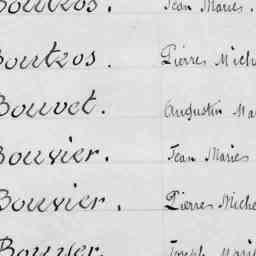 Boutzos. Jean Maries.
Boutzos. Pierres Mich
Bouvet. Augustin Ma
Bouvier. Jean Maries
Bouvier. Pierres Miche
Bouvier. Joseph Mari